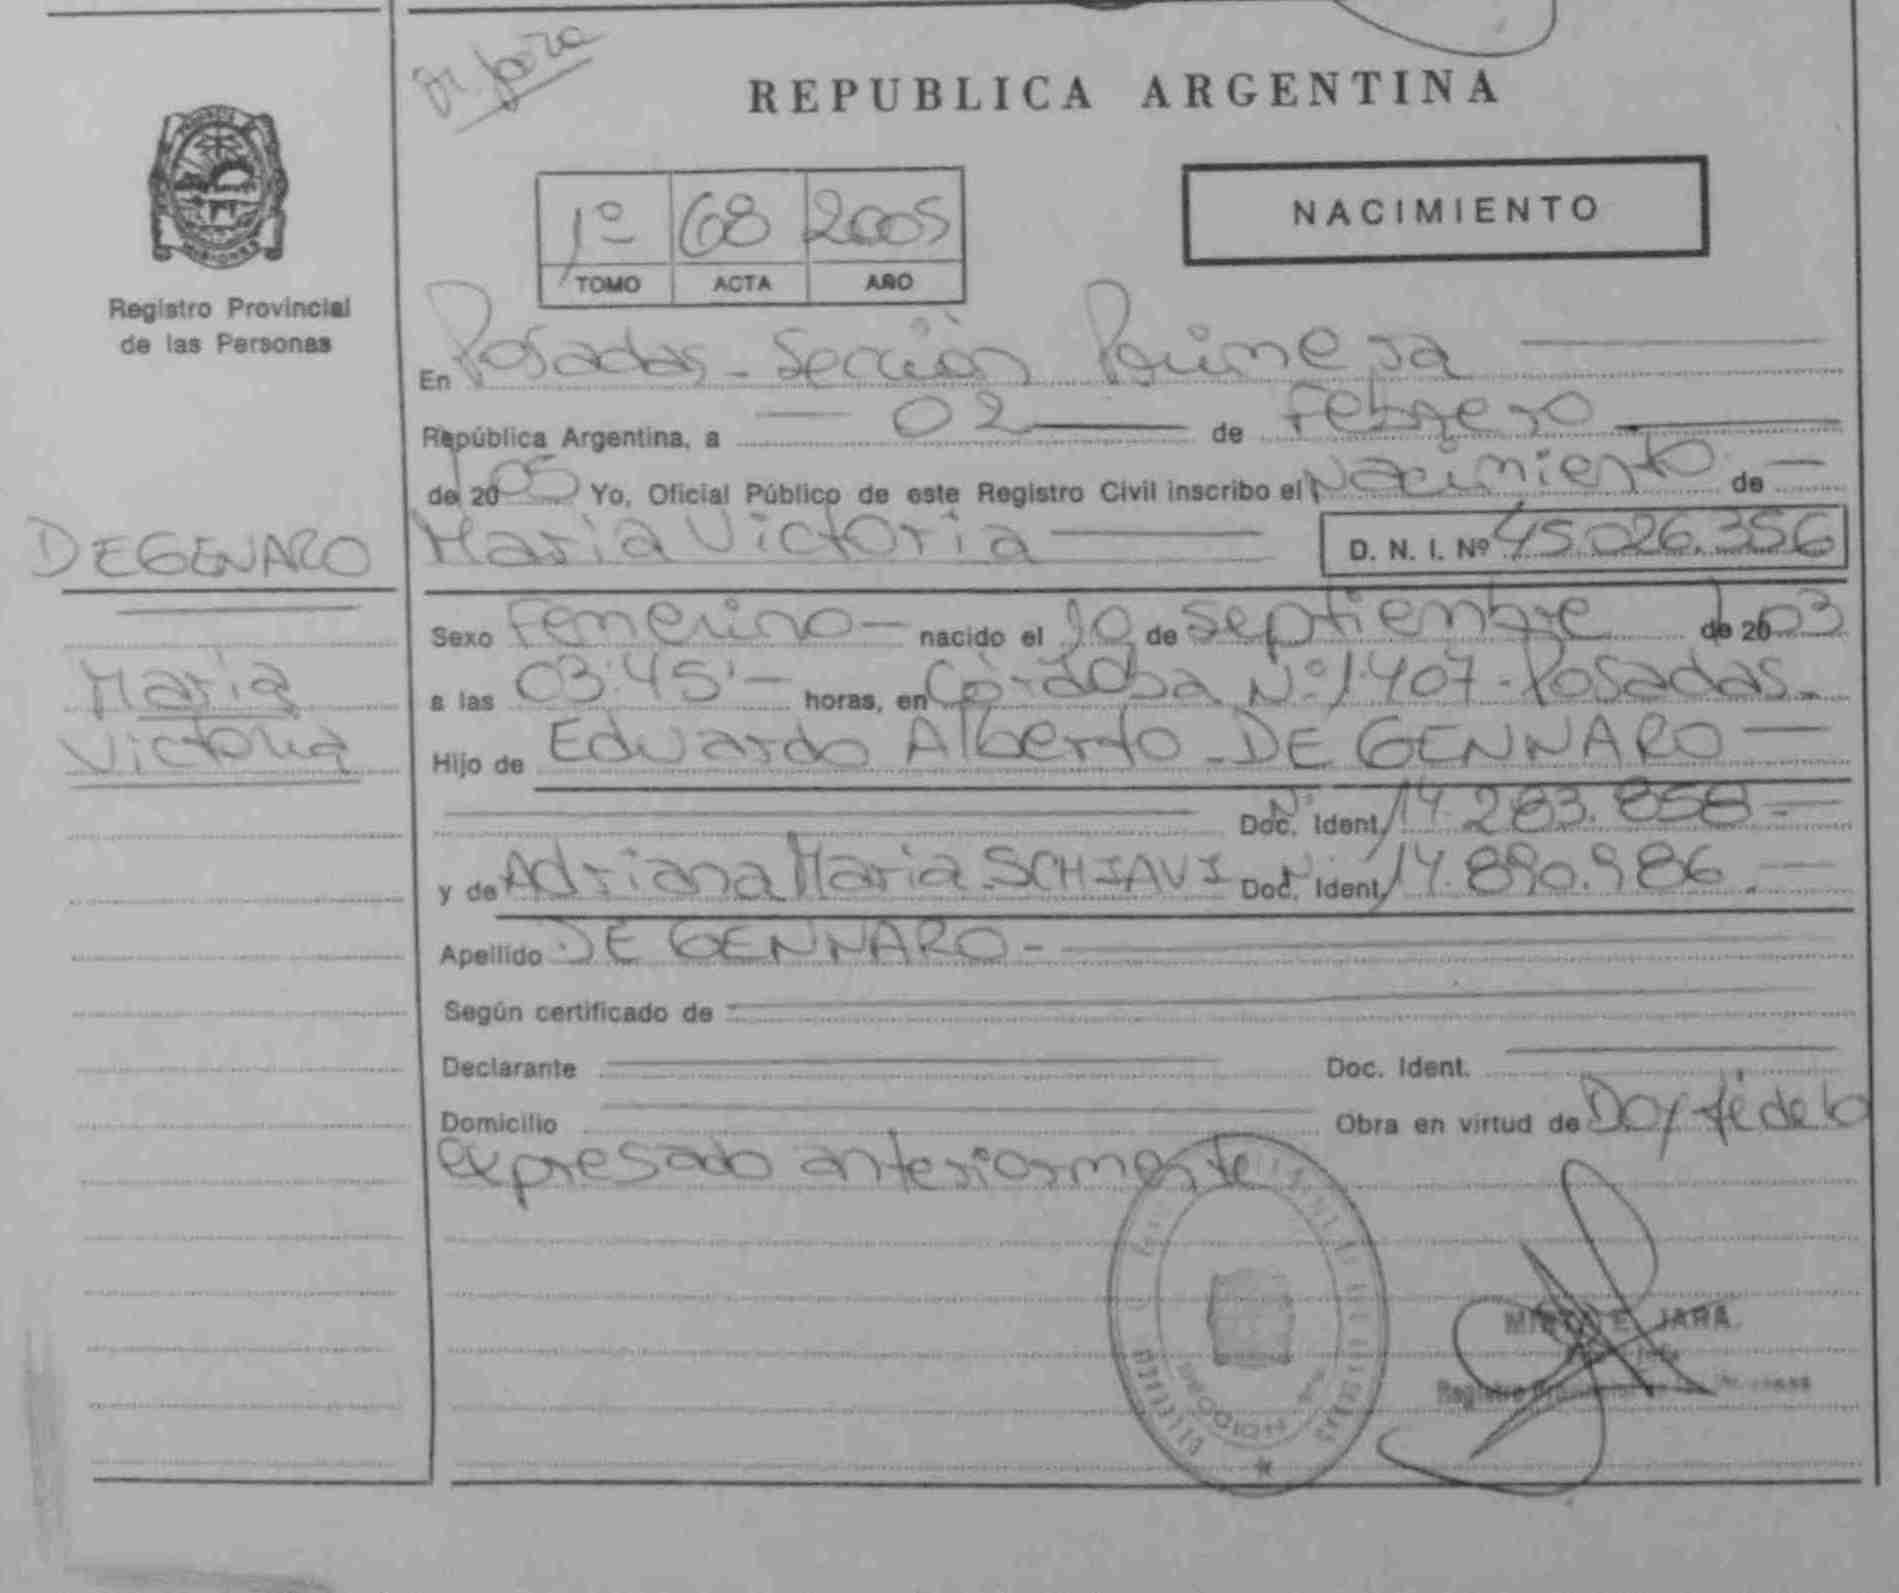 Di. para
REPUBLICA ARGENTINA
NACIMIENTO
1º 68 2005
TOMO ACTA AÑO
Registro Provincial
de las Personas
En Posadas - Sección Primera
República Argentina, a 02 de Febrero
de 2005 Yo, Oficial Público de este Registro Civil inscribo el Nacimiento de
DEGENARO
Maria Victoria
D. N. I. Nº 45.026.356
Maria
Victoria
Sexo Femenino nacido el de septiembre de 2003
a las 03:45'- horas, en Córdoba Nº 1.407 - Posadas.
Hijo de Eduardo Alberto - DE GENNARO
Doc. Ident. Nº 14.283.858.-
y de Adriana Maria SCHIAVI Doc. Ident. Nº 14.890.986.
Apellido DE GENNARO -
Según certificado de
Declarante Doc. Ident.
Domicilio Obra en virtud de Doy fé de lo
expresado anteriormente
E. JARA
Registro